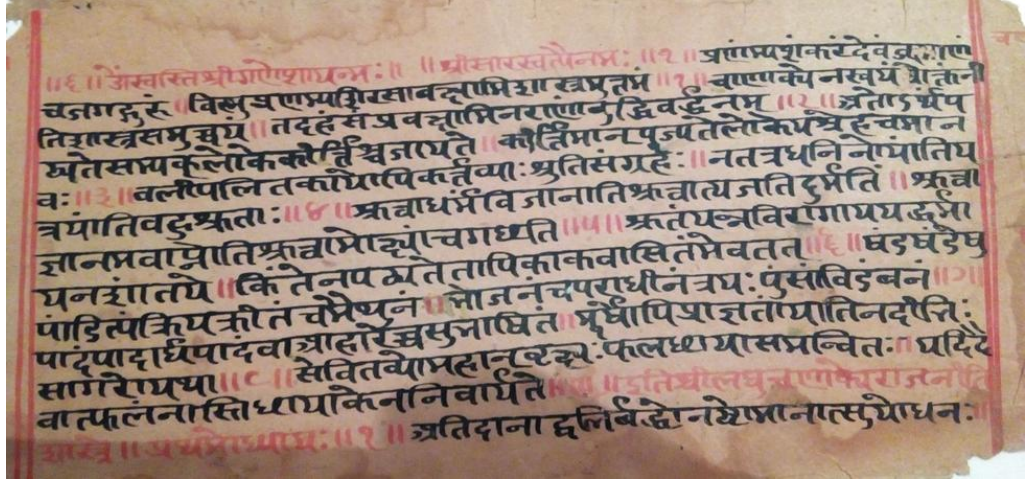 ॥६॥ॐस्वस्तिश्रीगणेशायनमः॥ ॥श्रीसारस्वत्यैनमः॥१॥प्रणम्यशंकरंदेवं
चजगद्गुरुं॥विस्मुप्रणम्यशिरसावक्ष्यामिशास्त्रमुत्तमं॥१॥चाणाक्येनस्वयंप्रोक्तंनी
तिशास्त्रसमुच्चयं॥तदहंसंप्रवक्ष्यामिनराणांबुद्धिवर्द्धनम्॥२॥श्रुतोऽर्थप
ठ्यतेसम्यक्लोकेकीर्त्तिश्चजायते॥कीर्त्तिमान्पूज्यतेलोकेपश्चेहचमान
वः॥३॥वलीपलितकायोपिकर्त्तव्याःश्रुतिसंग्रहः॥नतत्रधनिनोयांतिय
त्रयांतिवहुश्रुताः॥४॥श्रुत्वाधर्मंविजानातिश्रुत्वात्यजतिदुर्मतिं॥श्रुत्वा
ज्ञानमवाप्नोतिश्रुत्वामोक्ष्यंचगछति॥५॥श्रुतंयन्नविरागायय
यनशांतये॥किंतेनपठ्यतेतापिकाकवासितंमेवतत्॥६॥षंडषंडेषु
पांडित्यंक्रियक्रीतंचमैथुनं॥भोजनंचपराधीनंत्रयःपुंसांविडंबनं॥७॥
पादंपादार्धपादंवाआहारैच्चसुभाषितं॥मूर्षोपिप्राज्ञतांयातिनदीभिः
सागरोयथा॥८॥सेवितव्योमहान्वृक्ष्यःफलछायासमन्वितः॥यदिदै
वात्फलंनास्तिछायाकेननिवार्यते॥९॥इतिश्रीलघुचाणक्येराजनीति
शास्त्रे॥प्रथमोध्यायः॥१॥अतिदानाद्वलिर्बद्धोनष्टोमानात्सुयोधनः